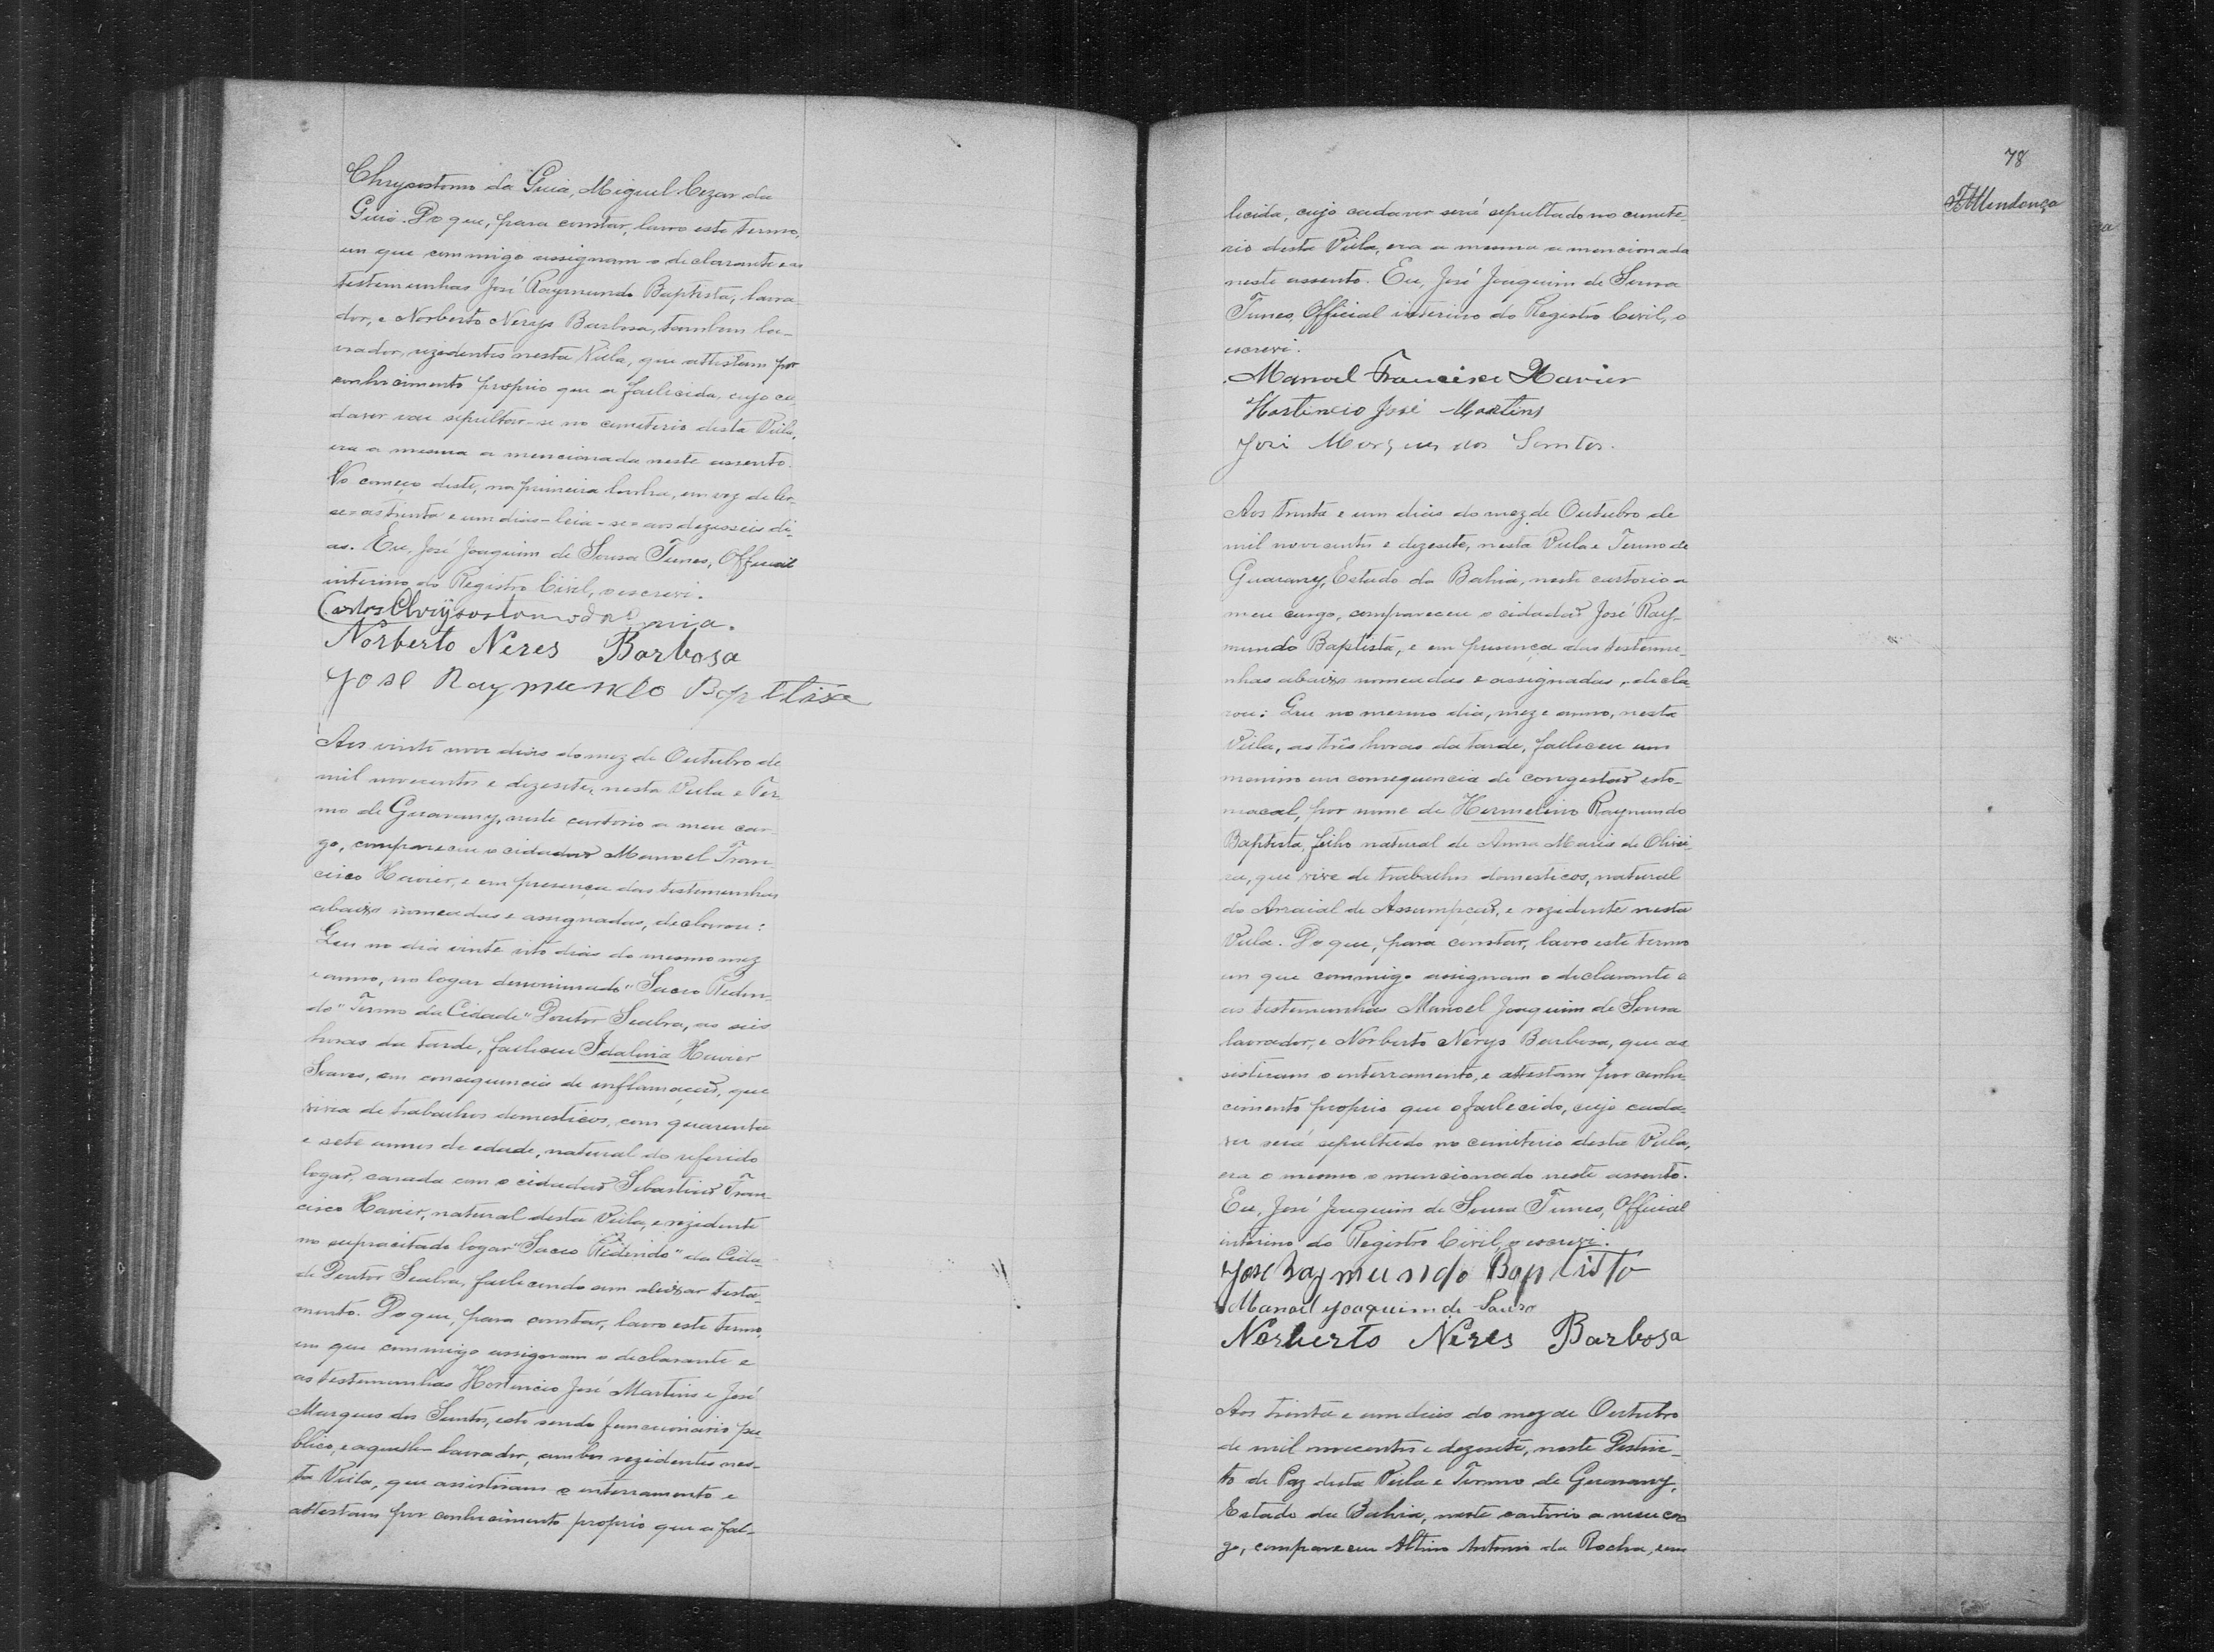 Chrysostomo da Guia, Miguel Cezar da
Guia. Do que, para constar, lavro este termo,
em que commigo assignam o declarante e as
testemunhas José Raymundo Baptista, lavra-
dor, e Norberto Nerys Barbosa, tambem la-
vrador, rezidentes nesta Villa, que attestam por
conhecimento proprio que a fallecida, cujo ca-
daver vae sepultar-se no cemiterio desta Villa,
era a mesma a mencionada neste assento.
No começo deste, na primeira linha, em vez de ler-
se=aos trinta e um dias-leia-se=aos dezesseis di-
as. Eu, José Joaquim de Sousa Tunes, Official
interino do Registro Civil, o escrevi.
Carlos Chrÿsostomo da Guia.
Norberto Neres Barbosa
José Raymundo Baptista
Aos vinte nove dias do mez de Outubro de
mil novecentos e dezesete, nesta Villa e Ter-
mo de Guarany, neste cartorio a meu car-
go, compareceu o cidadão Manoel Fran-
cisco Xavier, e em presença das testemunhas
abaixo nomeadas e assignadas, declarou:
Que no dia vinte oito dias do mesmo mez
e anno, no logar denominado "Sacco Redon-
do" Termo da Cidade "Doutor Seabra, as seis
horas da tarde, falleceu Idalina Xavier
Soares, em consequencia de inflamação, que
vivia de trabalhos domesticos, com quarenta
e sete annos de edade, natural do referido
logar, casada com o cidadão Sebastião Fran-
cisco Xavier, natural desta Villa, e rezidente
no supracitado logar "Sacco Redondo" da Cida-
de Doutor Seabra, fallecendo sem deixar testa-
mento. Do que, para constar, lavro este termo,
em que commigo assignam o declarante e
as testemunhas Hortencio José Martins e José
Marques dos Santos, este sendo funccionario pu-
blico, e aquelle lavrador, ambos rezidentes nes-
ta Villa, que assistiram o enterramento e
attestam por conhecimento proprio que a fal-
78
Mendonça
lecida, cujo cadaver será sepultado no cemite-
rio desta Villa, era a mesma a mencionada
neste assento. Eu, José Joaquim de Sousa
Tunes, Official interino do Registro Civil, o
escrevi.
Manoel Francisco Xavier
Hortencio José Martins
José Marques dos Santos.
Aos trinta e um dias do mez de Outubro de
mil novecentos e dezesete, nesta Villa e Termo de
Guarany, Estado da Bahia, neste cartorio a
meu cargo, compareceu o cidadão José Ray-
mundo Baptista, e em presença das testemu-
nhas abaixo nomeadas e assignadas, decla-
rou: Que no mesmo dia, mez e anno, nesta
Villa, as três horas da tarde, falleceu um
menino em consequencia de congestão esto-
macal, por nome de Hermelino Raymundo
Baptista, filho natural de Anna Maria de Olivei-
ra, que vive de trabalhos domesticos, natural
do Arraial de Assumpção, e rezidente nesta
Villa. Do que, para constar, lavro este termo
em que commigo assignam o declarante e
as testemunhas Manoel Joaquim de Sousa
lavrador, e Norberto Nerys Barbosa, que as
sistiram o enterramento, e attestam por conhe-
cimento proprio que o fallecido, cujo cada-
ver será sepultado no cemiterio desta Villa,
era o mesmo o mencionado neste assento.
Eu, José Joaquim de Sousa Tunes, Official
interino do Registro Civil, o escrevi.
José Raymundo Baptista
Manoel Joaquim de Sousa
Norberto Neres Barbosa
Aos trinta e um dias do mez de Outubro
de mil novecentos e dezesete, neste Distric-
to de Paz desta Villa e Termo de Guarany,
Estado da Bahia, neste cartorio a meu car
go, compareceu Altino Antonio da Rocha, em